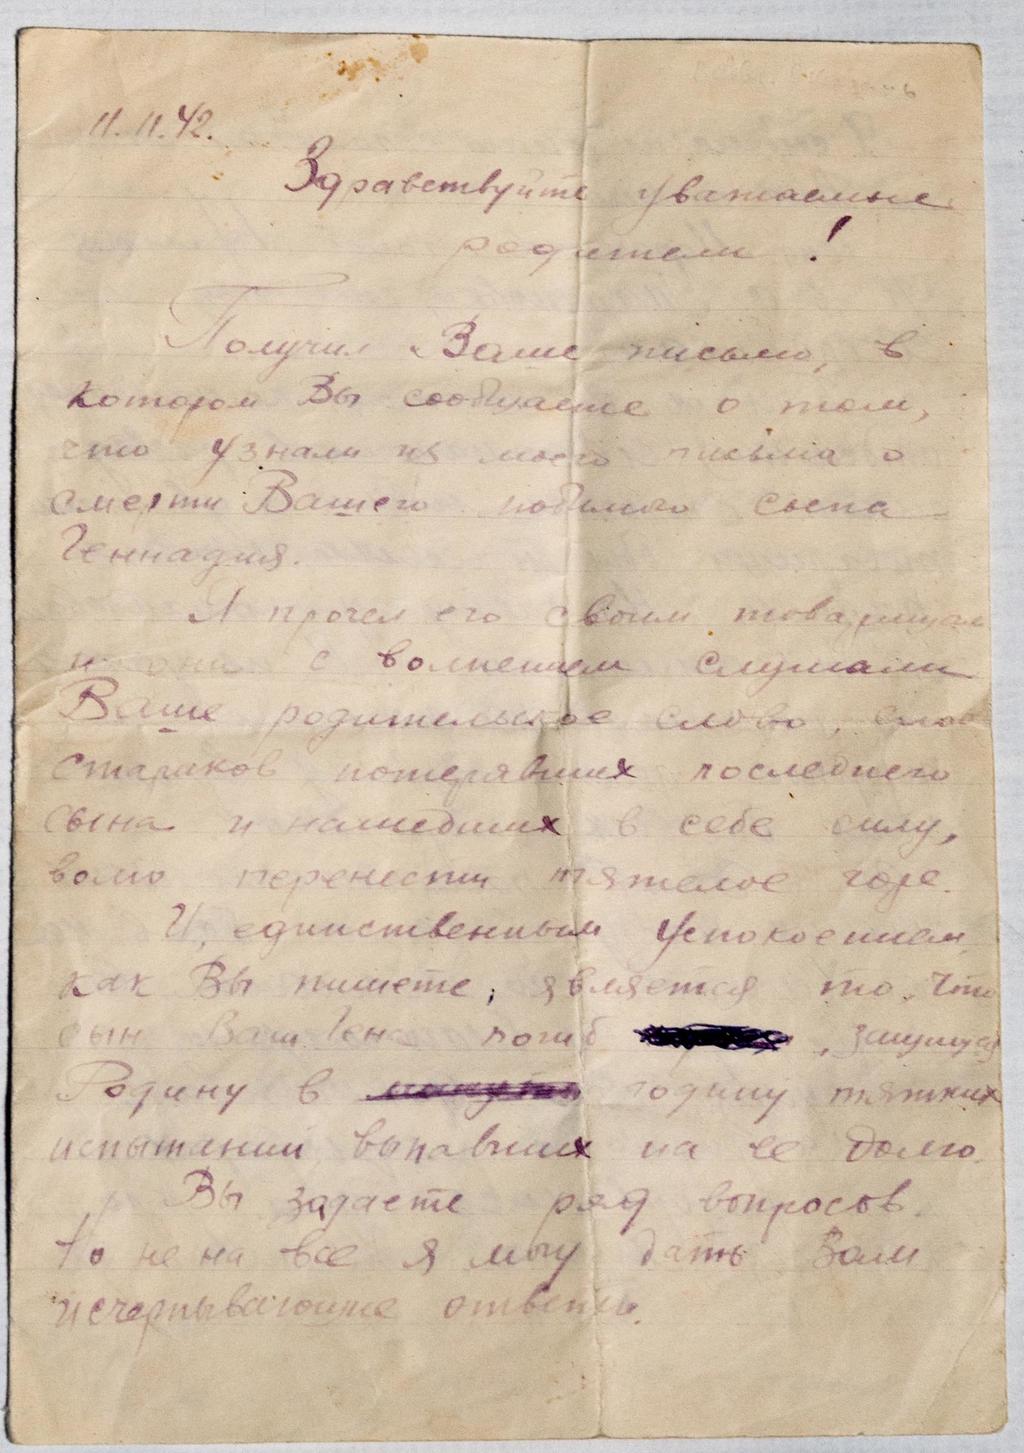 11.11.42.
Здравствуйте уважаемые
родители!
Получил Ваше письмо, в
котором Вы сообщаете о том,
что узнали из моего письма о
смерти Вашего любимого сына
Геннадия.
Я прочел его своим товарищам
и они с волнением слушали
Ваше родительское слово, слово
стариков потерявших последнего
сына и нашедших в себе силу,
волю перенести тяжелое горе.
И, единственным успокоением,
как Вы пишете, является то, что
сын Ваш Гена погиб, защищая
Родину в годину тяжких
испытаний, выпавших на ее долю.
Вы задаете ряд вопросов.
Но не на все я могу дать Вам
исчерпывающие ответы.